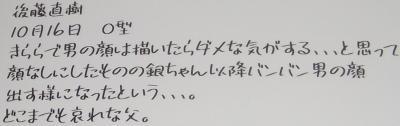 後藤直樹
10月16日 O型
きららで男の顔は描いたらダメな気がする、、、と思って
顔なしにしたものの銀ちゃん以降バンバン男の顔
出す様になったという、、、。
どこまでも哀れな父。